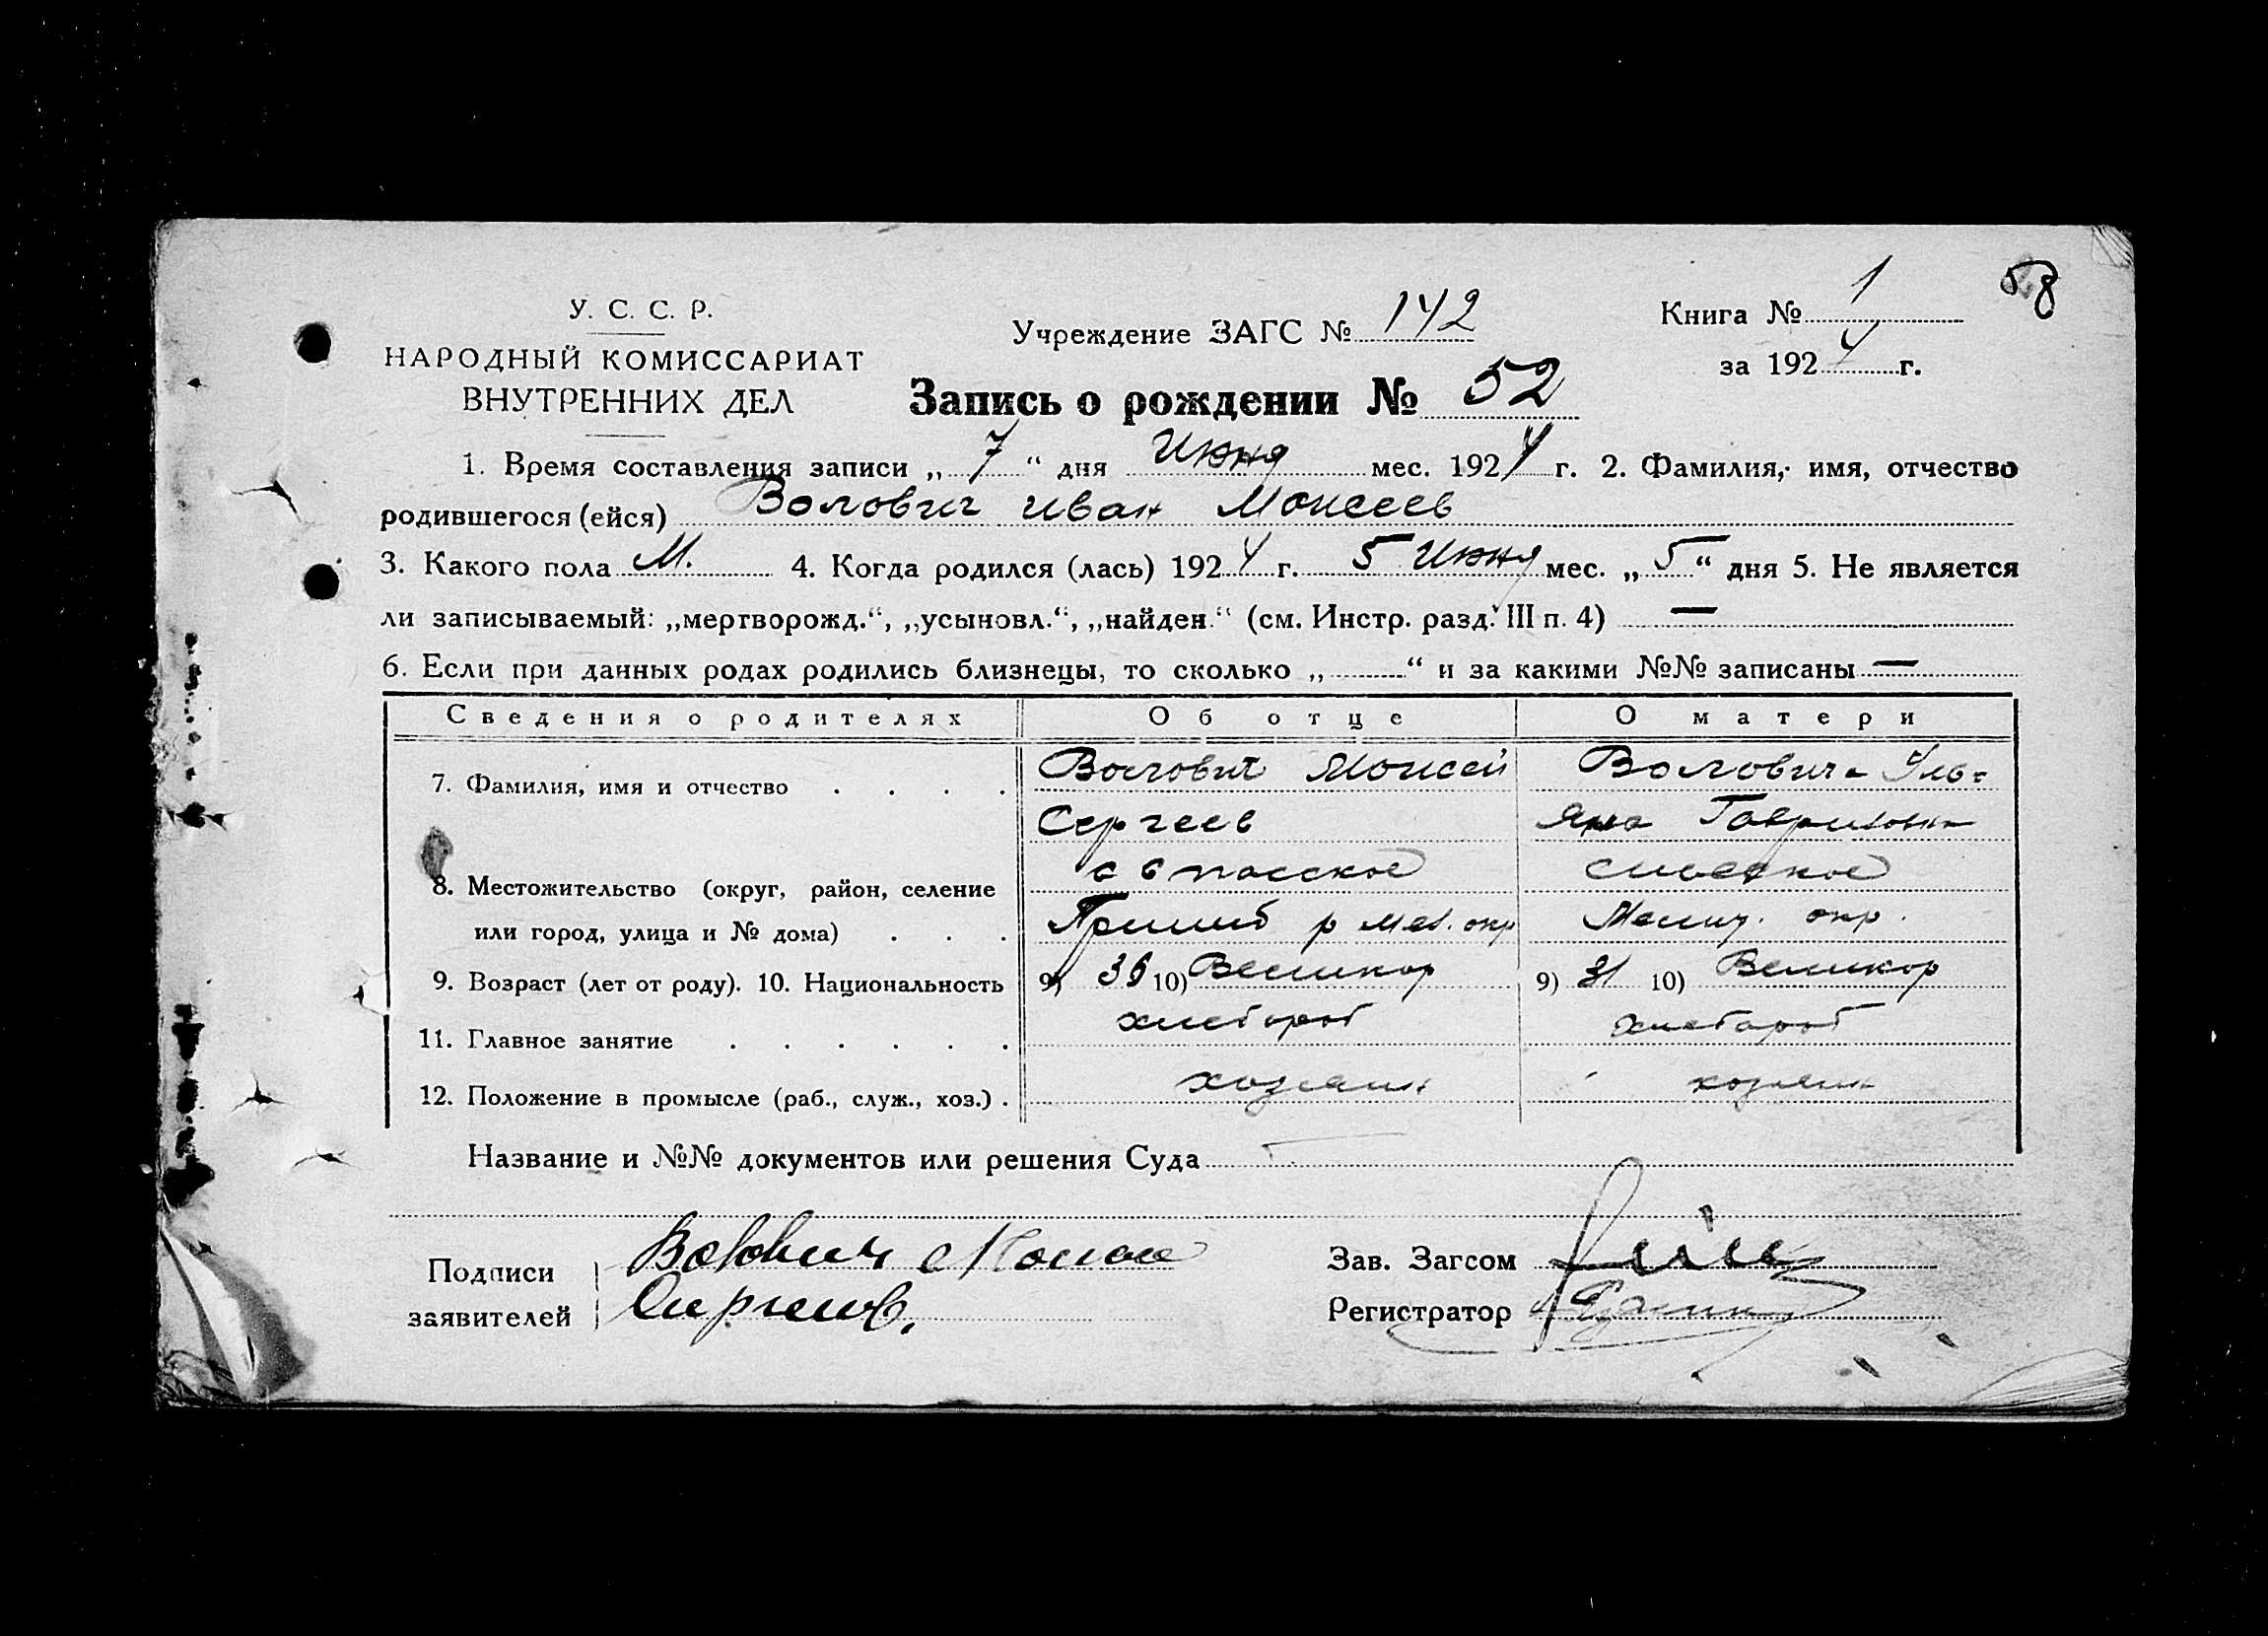 58
У. С. С. Р.
НАРОДНЫЙ КОМИССАРИАТ
ВНУТРЕННИХ ДЕЛ
Учреждение ЗАГС № 142
Книга № 1
за 1924 г.
Запись о рождении № 52
1. Время составления записи „ 7 “ дня Июня мес. 1924 г. 2. Фамилия, имя, отчество
родившегося (ейся) Волович Иван Моисеев
3. Какого пола М. 4. Когда родился (лась) 1924 г. 5 Июня мес. „ 5 “ дня 5. Не является
ли записываемый: „мертворожд.“, „усыновл.“, „найден.“ (см. Инстр. разд. III п. 4) —
6. Если при данных родах родились близнецы, то сколько „ “ и за какими №№ записаны —
Сведения о родителях Об отце О матери
7. Фамилия, имя и отчество . . . . Волович Моисей Волович Уль=
Сергеев яна
8. Местожительство (округ, район, селение с Спасское
или город, улица и № дома) . . . Пришиб р Мел. окр окр.
9. Возраст (лет от роду). 10. Национальность 9) 36 10) Великор 9) 31 10) Великор
11. Главное занятие . . . . . . хлебороб хлебороб
12. Положение в промысле (раб., служ., хоз.) . хозяин хозяин
Название и №№ документов или решения Суда
Подписи Волович
заявителей
Зав. Загсом
Регистратор